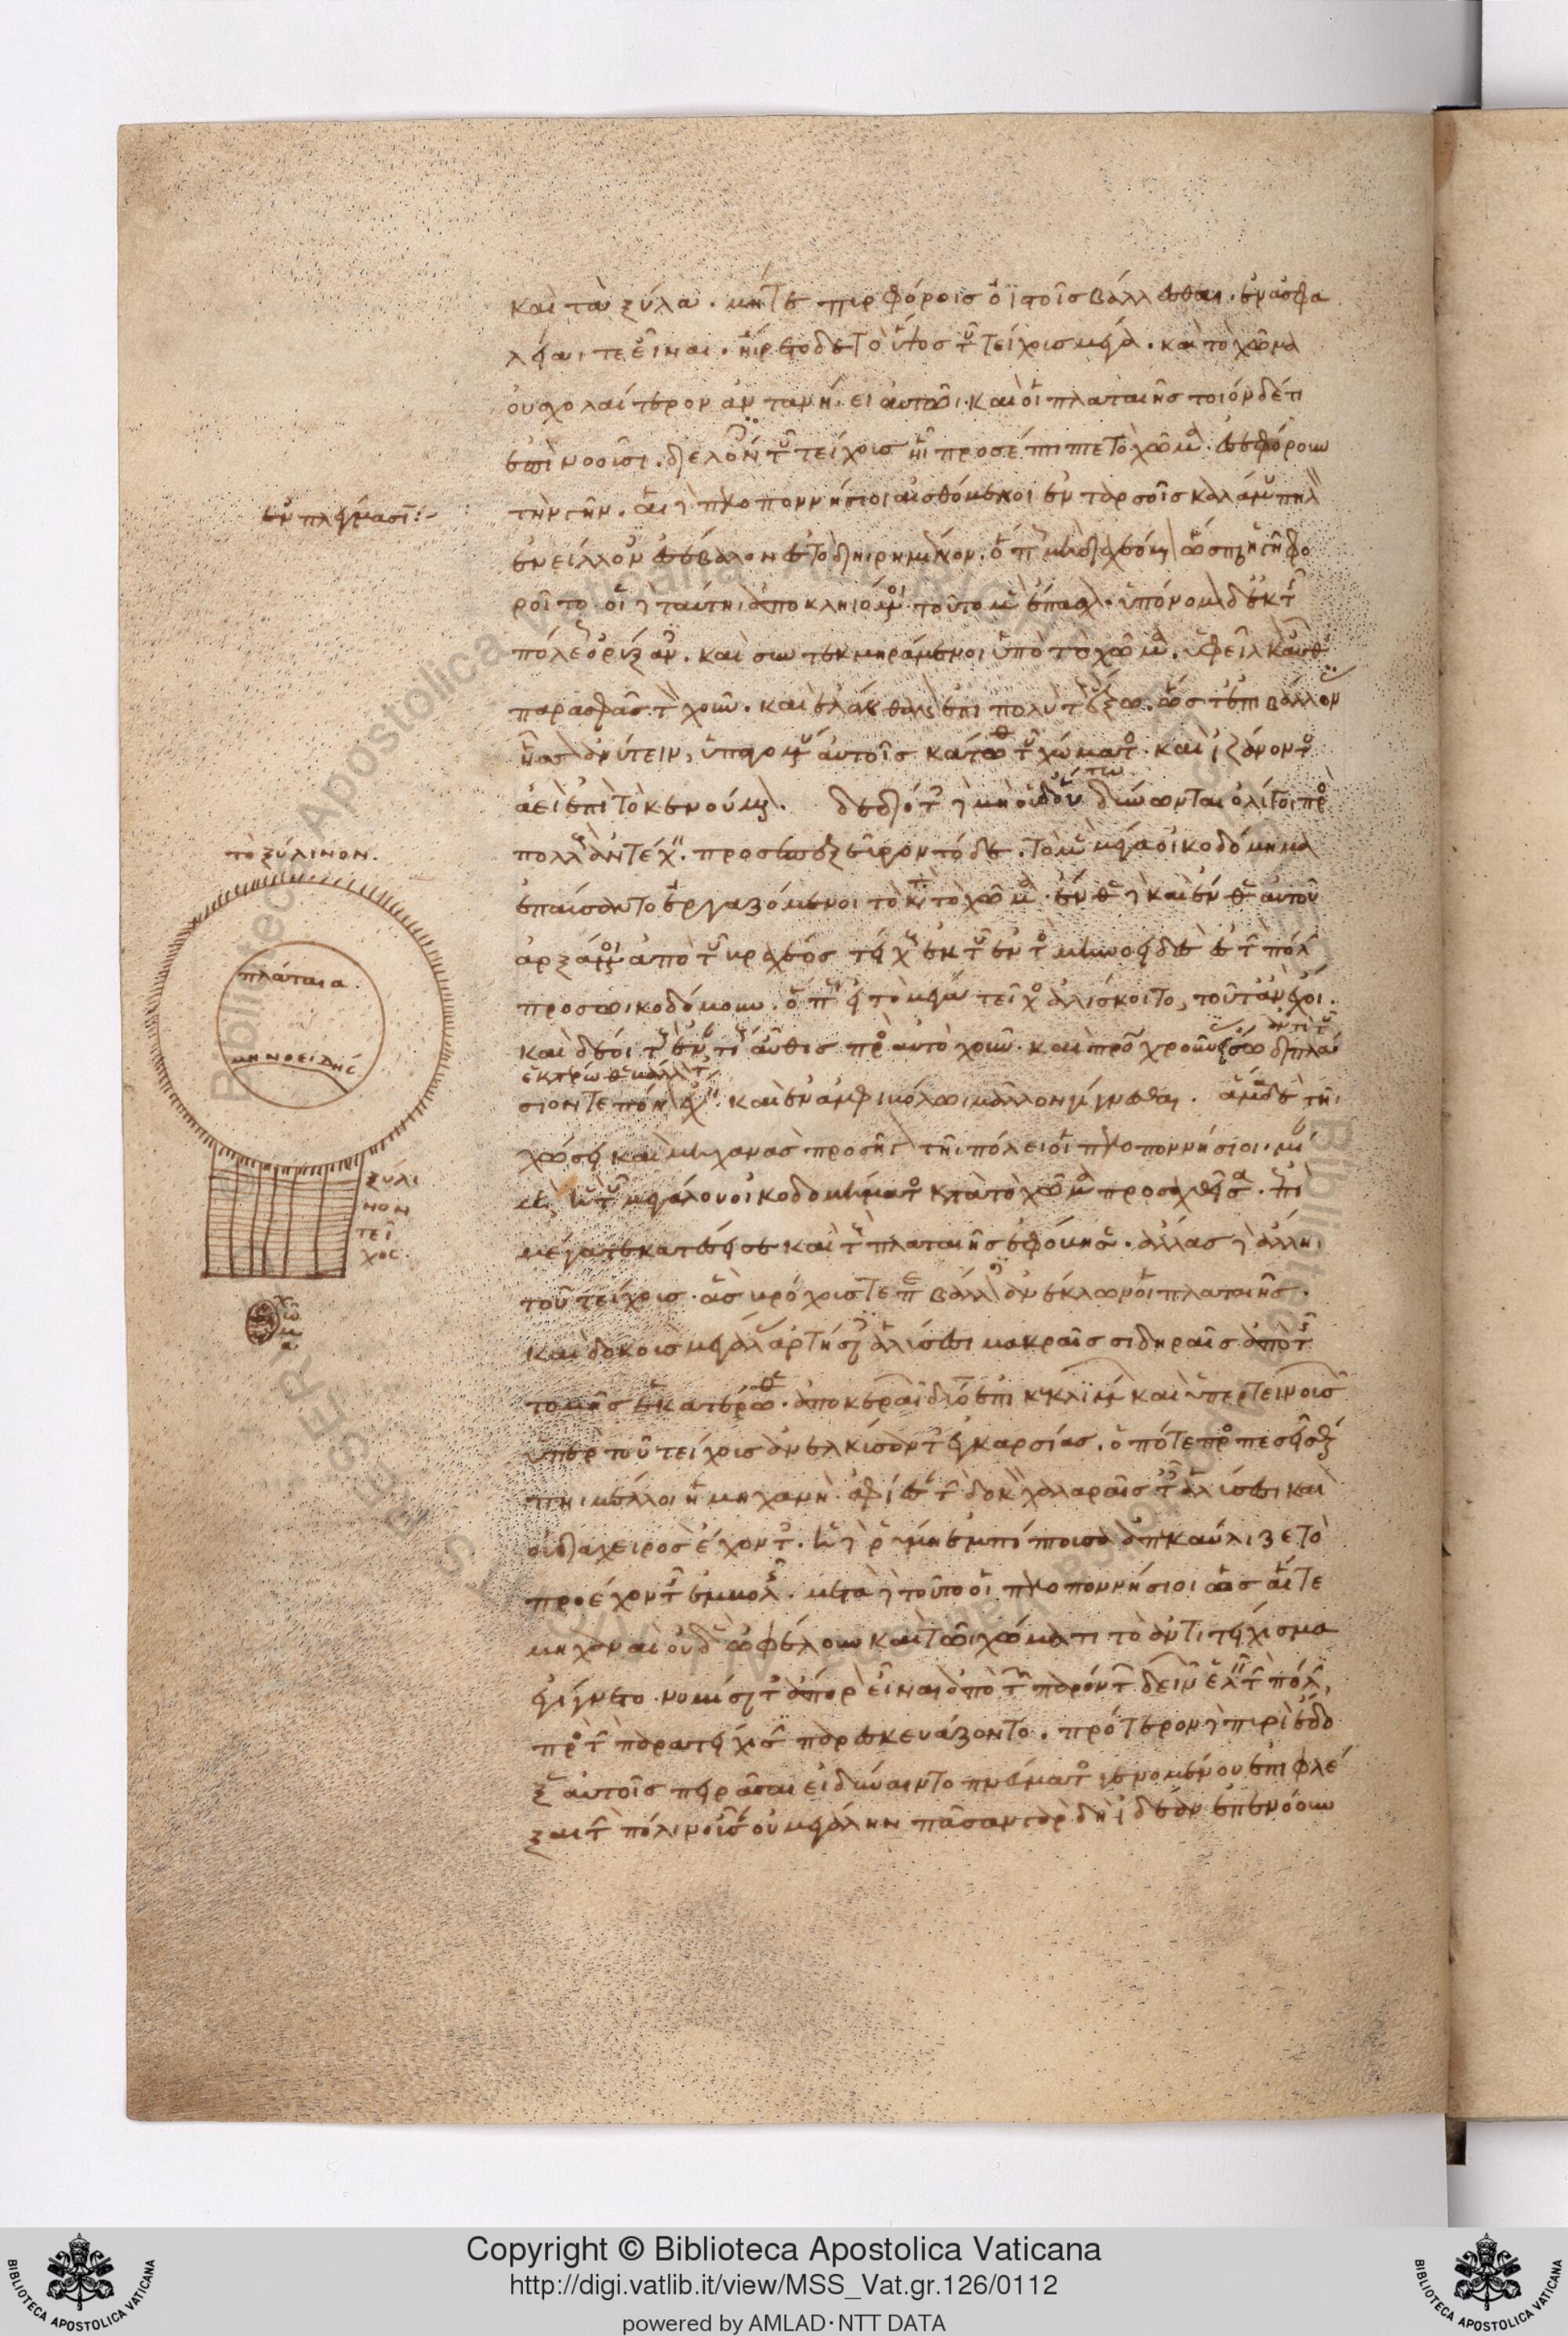 καὶ τὰ ξύλα. μήτε πυρφόροις οϊστοῖς βάλλεσθαι. ἐν ἀσφα
λείαι τε εἶναι. ἤρετο δὲ τὸ ὕψος τοῦ τείχους μέγα. καὶ τὸ χῶμα
οὐ σχολαίτερον ἀντανήει αὐτῶι. καὶ οἱ πλαταιῆς τοιόνδέ τι
ἐπινοοῦσι. διελόντες τοῦ τείχους ἧι προσέπιπτε τὸ χῶμα. ἐσεφόρουν
τὴν γῆν. οἱ δὲ πελοποννήσιοι αἰσθόμενοι ἐν ταρσοῖς καλάμου πηλὸν
ἐν πηλώμασι:-
ἐνείλλοντες ἐσέβαλον ἐς τὸ διηιρημένον. ὅπως μὴ διαχεόμενον ὥσπερ ἡ γῆ φο
ροῖτο. οἱ δὲ ταύτηι ἀποκληιόμενοι τοῦτο μὲν ἐπέσχον. ὑπόνομον δὲ ἐκ τῆς
πόλεως ὀρύξαντες. καὶ συντεκμηράμενοι ὑπὸ τὸ χῶμα. ὑφεῖλκον αὖθις
παρὰ σφᾶς τὸν χοῦν. καὶ ἐλάνθανον ἐπὶ πολὺ τοὺς ἔξω. ὥστε ἐπιβάλλοντας
ἧσσον ἀνύτειν, ὑπαγομένου αὐτοῖς κάτωθεν τοῦ χώματος. καὶ ἱζάνοντος
ἀεὶ ἐπὶ τὸ κενούμενον. δεδιότες δὲ μὴ οὐδ' οὕτω δύνωνται ὀλίγοι πρὸς
πολλοὺς ἀντέχειν. προσεπεξεῦρον τόδε. τὸ μὲν μέγα οἰκοδόμημα
ἐπαύσαντο ἐργαζόμενοι τὸ κατὰ τὸ χῶμα. ἔνθεν δὲ καὶ ἔνθεν αὐτοῦ
ἀρξάμενοι ἀπὸ τοῦ βραχέος τείχους ἐκ τοῦ ἐντὸς μηνοειδὲς ἐς τὴν πόλιν
προσωικοδόμουν. ὅπως εἰ τὸ μέγα τεῖχος ἁλίσκοιτο, τοῦτ' ἀντέχοι.
καὶ δέοι τοὺς ἐναντίους αὖθις πρὸς αὐτὸ χοῦν. καὶ προχωροῦντας ἔσω διπλά
σιόν τε πόνον ἔχειν. καὶ ἐν ἀμφιβόλωι μᾶλλον γίγνεσθαι. ἅμα δὲ τῆι
χώσει καὶ μηχανὰς προσῆγον τῆι πόλει οἱ πελοποννήσιοι. μί
αν μὲν ἣ τοῦ μεγάλου οἰκοδομήματος κατὰ τὸ χῶμα προσαχθεῖσα. ἐπὶ
μέγα τε κατέσεισε καὶ τοὺς πλαταιῆς ἐφόβησεν. ἄλλας δὲ ἄλληι
τοῦ τείχους. ἃς βρόχους τε περιβάλλοντες ἀνέκλων οἱ πλαταιῆς.
καὶ δοκοὺς μεγάλας ἀρτήσαντες ἁλύσεσι μακραῖς σιδηραῖς ἀπὸ τῆς
τομῆς ἑκατέρωθεν. ἀπὸ κεραιῶν δύο ἐπικεκλιμένων καὶ ὑπερτεινουσῶν
ὑπὲρ τοῦ τείχους ἀνελκύσαντες ἐγκαρσίας. ὁπότε προσπεσεῖσθαί
πηι μέλλοι ἡ μηχανὴ. ἀφίεσαν τὴν δοκὸν χαλαραῖς ταῖς ἁλύσεσι καὶ
οὐ διὰ χειρὸς ἔχοντες. ἡ δὲ ῥύμηι ἐμπίπτουσα ἀπεκαύλιζε τὸ
προέχον τῆς ἐμβολῆς. μετὰ δὲ τοῦτο οἱ πελοποννήσιοι ὡς αἵ τε
μηχαναὶ οὐδὲν ὠφέλουν καὶ τῶι χώματι τὸ ἀντιτείχισμα
ἐγίγνετο. νομίσαντες ἄπορον εἶναι ἀπὸ τῶν παρόντων δεινῶν ἑλεῖν τὴν πόλιν,
πρὸς τὴν περιτείχισιν παρεσκευάζοντο. πρότερον δὲ πυρὶ ἔδο
ξεν αὐτοῖς πειρᾶσαι εἰ δύναιντο πνεύματος γενομένου ἐπιφλέ
ξαι τὴν πόλιν οὖσαν οὐ μεγάλην. πᾶσαν γὰρ δὴ ἰδέαν ἐπενόουν
τὸ ξύλινον.
πλάταια.
μηνοειδής
ξύλι
νον
τεῖ
χος.
χῶ
μα